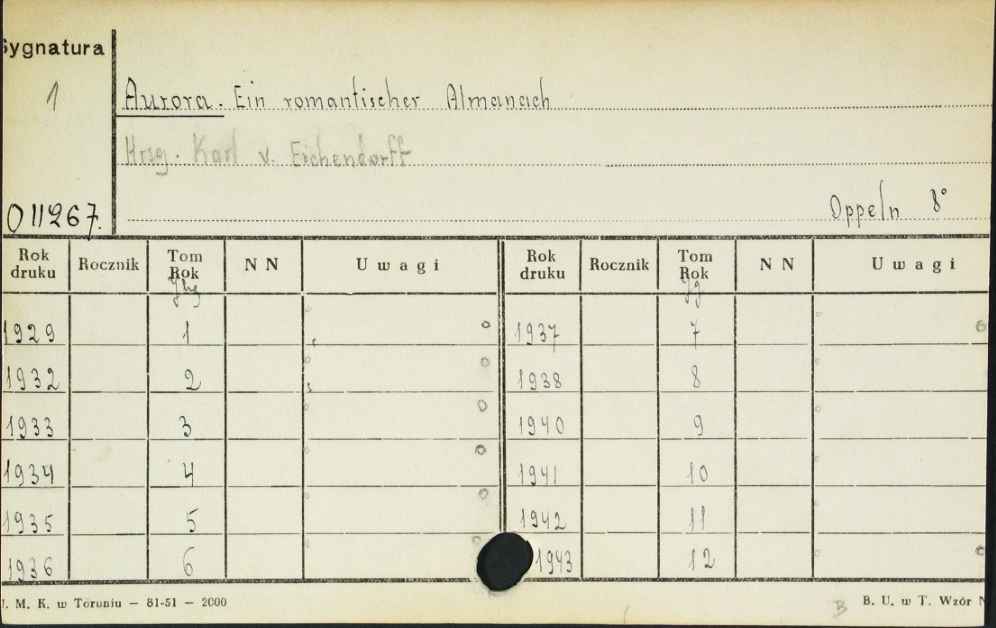 Sygnatura
1
Aurora. Ein romantischer Almanach
Hrsg. Karl v. Eichendorff
011267.
Oppeln 8°
Rok druku Rocznik Tom Rok NN Uwagi Rok druku Rocznik Tom Rok NN Uwagi
Jhg Jg
1929 1 1937 7
1932 2 1938 8
1933 3 1940 9
1934 4 1941 10
1935 5 1942 11
1936 6 1943 12
U. M. K. w Toruniu — 81-51 — 2000
B
B. U. w T. Wzór N